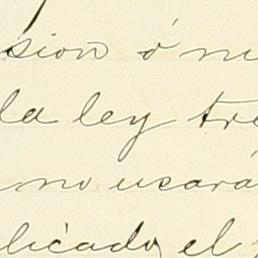 sion ó
la ley
no usará
plicado, el